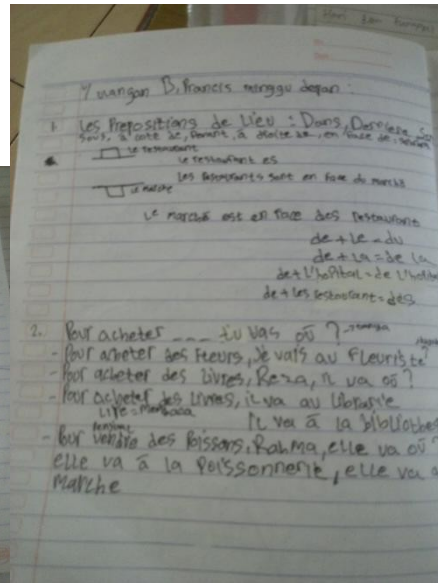 Ulangan B. Prancis minggu depan:
1. Les Prepositions de Lieu: Dans, Derrière, Sur
sous, à côté de, devant, à droite de, en face de,
le restaurant
le restaurant es
les restaurants sont en face du marché
le marché
Le marché est en face des restaurants
de + le = du
de + la = de la
de + l'hopital = de l'hopital
de + les restaurant = des
2. Pour acheter --- tu vas où ?
- Pour acheter des fleurs, Je vais au Fleuriste
- Pour acheter des livres, Reza, il va où ?
- Pour acheter des livres, il va au librarie
Lire = membaca
il va à la bibliothe
- Pour vendre des Poissons, Rahma, elle va où ?
elle va à la Poissonnerie, elle va a
Marche